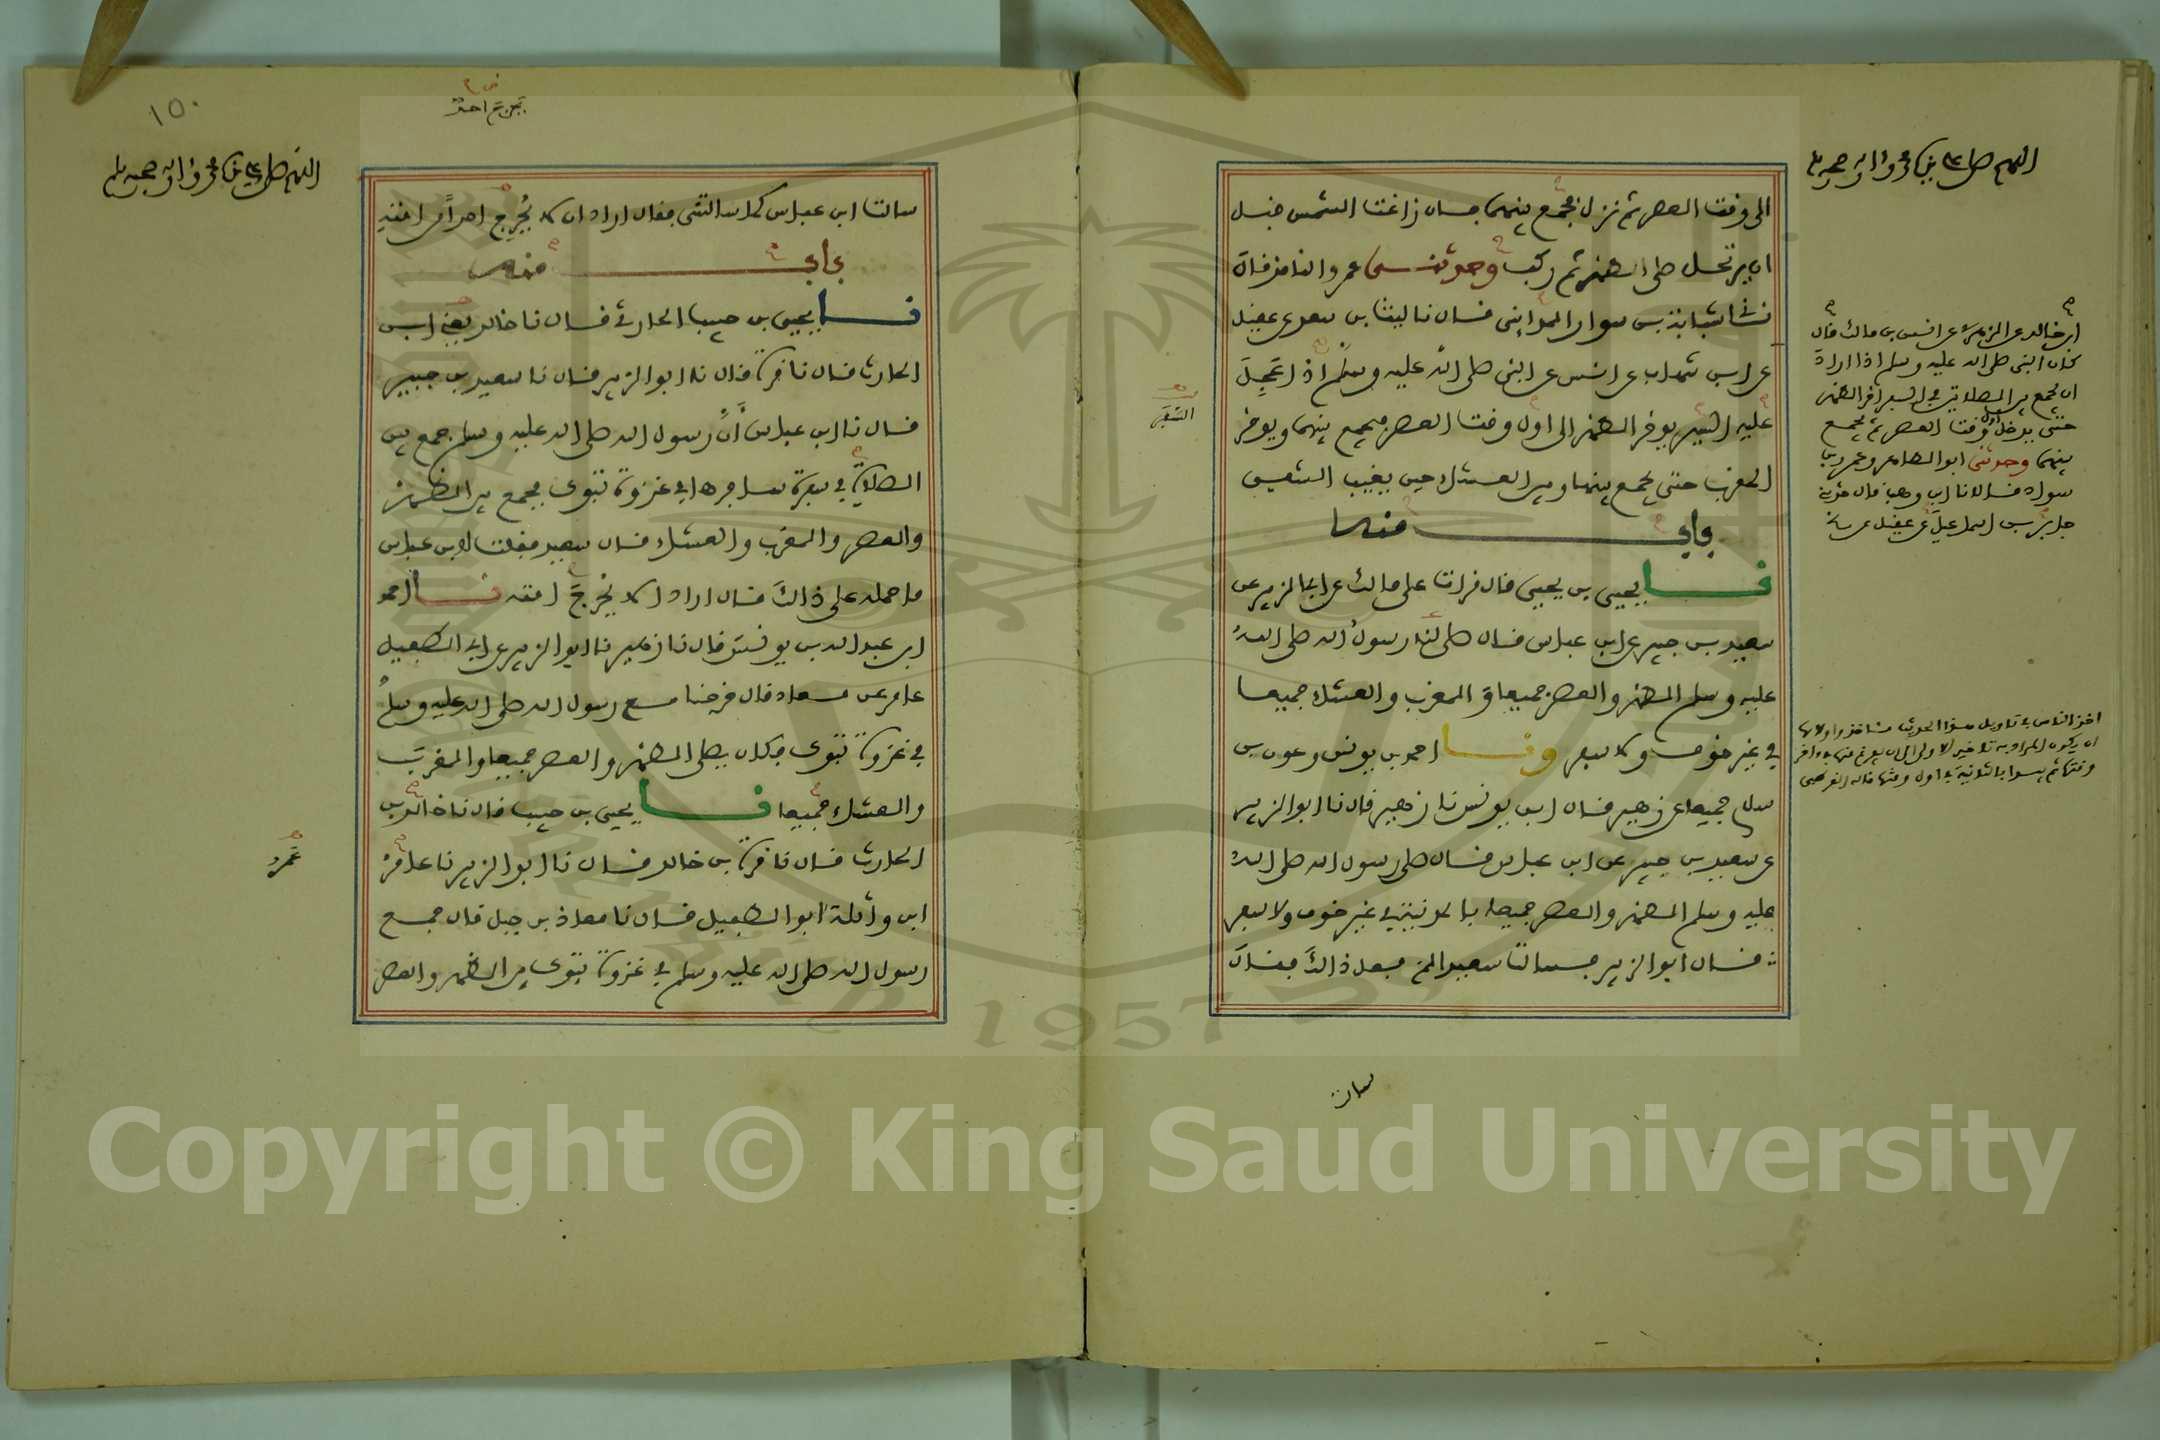 اللهم صل على نبيك محمد واله وصحبه وسلم
الى وقت العصر ثم نزل فجمع بينهما فان زاغت الشمس قبل
ان يرتحل صلى الظهر ثم ركب وحدثنى عمرو الناقد قال
نا شبابة بن سوار المدايني قال نا ليث بن سعد عن عقيل
عن ابن شهاب عن انس عن النبي صلى الله عليه وسلم اذا عجل
عليه السير يوخر الظهر الى اول وقت العصر فيجمع بينهما ويوخر
المغرب حتى يجمع بينها وبين العشاء حين يغيب الشفق
باب منه
نا يحيى بن يحيى قال قرات على مالك عن ابي الزبير عن
سعيد بن جبير عن ابن عباس قال صلى لنا رسول الله صلى الله
عليه وسلم الظهر والعصر جميعا والمغرب والعشاء جميعا
في غير خوف ولا سفر ونا احمد بن يونس وعون بن
سلام جميعا عن زهير قال ابن يونس نا زهير قال نا ابو الزبير
عن سعيد بن جبير عن ابن عباس قال صلى رسول الله صلى الله
عليه وسلم الظهر والعصر جميعا بالمدينة في غير خوف ولا سفر
قال ابو الزبير فسالت سعيدا لم فعل ذالك فقال
سالت
السفر
ابن خالد عن الزهري عن انس بن مالك قال
كان النبي صلى الله عليه وسلم اذا اراد
ان يجمع بين الصلاتين في السفر اخر الظهر
حتى يدخل اول وقت العصر ثم يجمع
بينهما وحدثني ابو الطاهر وعمرو بن
سواد قالا نا ابن وهب قال حدثني
جابر بن اسماعيل عن عقيل عن
اخذ الناس في تاويل هذا الحديث
ان يكون المراد به تاخير الاولى الى ان يفرغ منها في اخر
وقتها ثم بدا بالثانية في اول وقتها قاله القرطبي
١٥٠
يحرج احد
اللهم صل على نبيك محمد واله وصحبه وسلم
سالت ابن عباس كما سالتني فقال اراد ان لا يحرج احدا من امته
باب منه
نا يحيى بن حبيب الحارثي قال نا خالد يعني ابن
الحارث قال نا قرة قال نا ابو الزبير قال نا سعيد بن جبير
قال نا ابن عباس ان رسول الله صلى الله عليه وسلم جمع بين
الصلاة في سفرة سافرها في غزوة تبوك فجمع بين الظهر
والعصر والمغرب والعشاء قال سعيد فقلت لابن عباس
ما حمله على ذالك قال اراد الا يحرج امته نا احمد
ابن عبد الله بن يونس قال نا زهير نا ابو الزبير عن ابي الطفيل
عامر عن معاذ قال خرجنا مع رسول الله صلى الله عليه وسلم
في غزوة تبوك فكان يصلى الظهر والعصر جميعا والمغرب
والعشاء جميعا نا يحيى بن حبيب قال نا خالد بن
الحارث قال نا قرة بن خالد قال نا ابو الزبير نا عامر
ابن واثلة ابو الطفيل قال نا معاذ بن جبل قال جمع
رسول الله صلى الله عليه وسلم في غزوة تبوك بين الظهر والعصر
عمرو
Copyright © King Saud University
1957